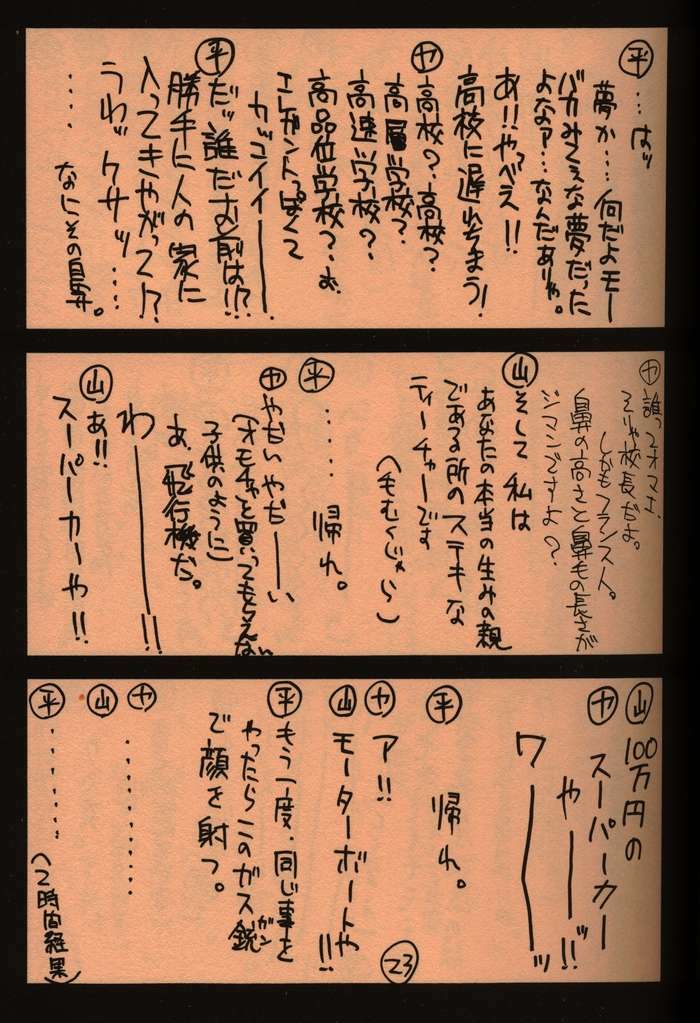 平 …はッ
夢か…何だよモー
バカみてぇな夢だった
よなァ…なんだありゃ。
あ!!やっべえ!!
高校に遅れちまう!
ヤ 高校?高校?
高層学校?
高速学校?
高品位学校?
エレガントっぽくて
カッコイイ――――
平 だッ誰だお前は!?
勝手に人の家に
入ってきやがって!?
うわッケサッ……
…… なにその鼻。
ヤ 誰ってオマエ、
そりゃ校長だよ。
しかもフランス人。
鼻の高さと鼻毛の長さが
ジマンですよ?
山 そして私は
あなたの本当の生みの親
である所のステキな
ティーチャーです
(毛むくじゃら)
平 ……帰れ。
ヤ やだいやだーーい
(オモチャを買ってもらえない
子供のように)
あ、飛行機だ。
わ――――!!
山 あ!!
スーパーカーや!!
山 100万円の
ヤ スーパーカー
や――ッ!!
ワ――――ッ
平 帰れ。
ヤ ア!!
山 モーターボートや!!
平 もう一度、同じ事を
やったらこのガス銃
ガン
で顔を射つ。
ヤ ………
山 ………
平 ………
(2時間経過)
23